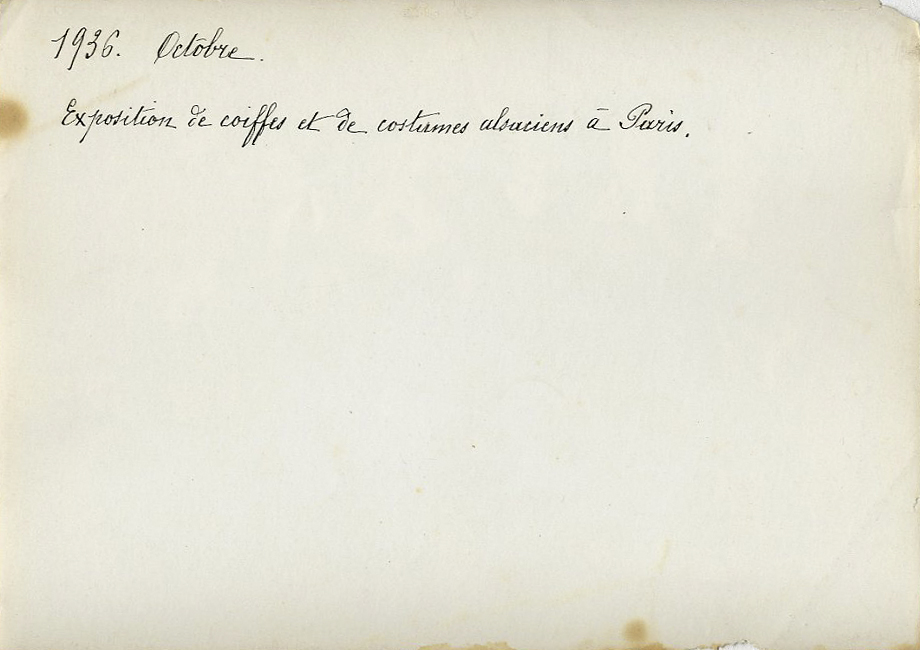 1936. Octobre.
Exposition de coiffes et de costumes alsaciens à Paris.